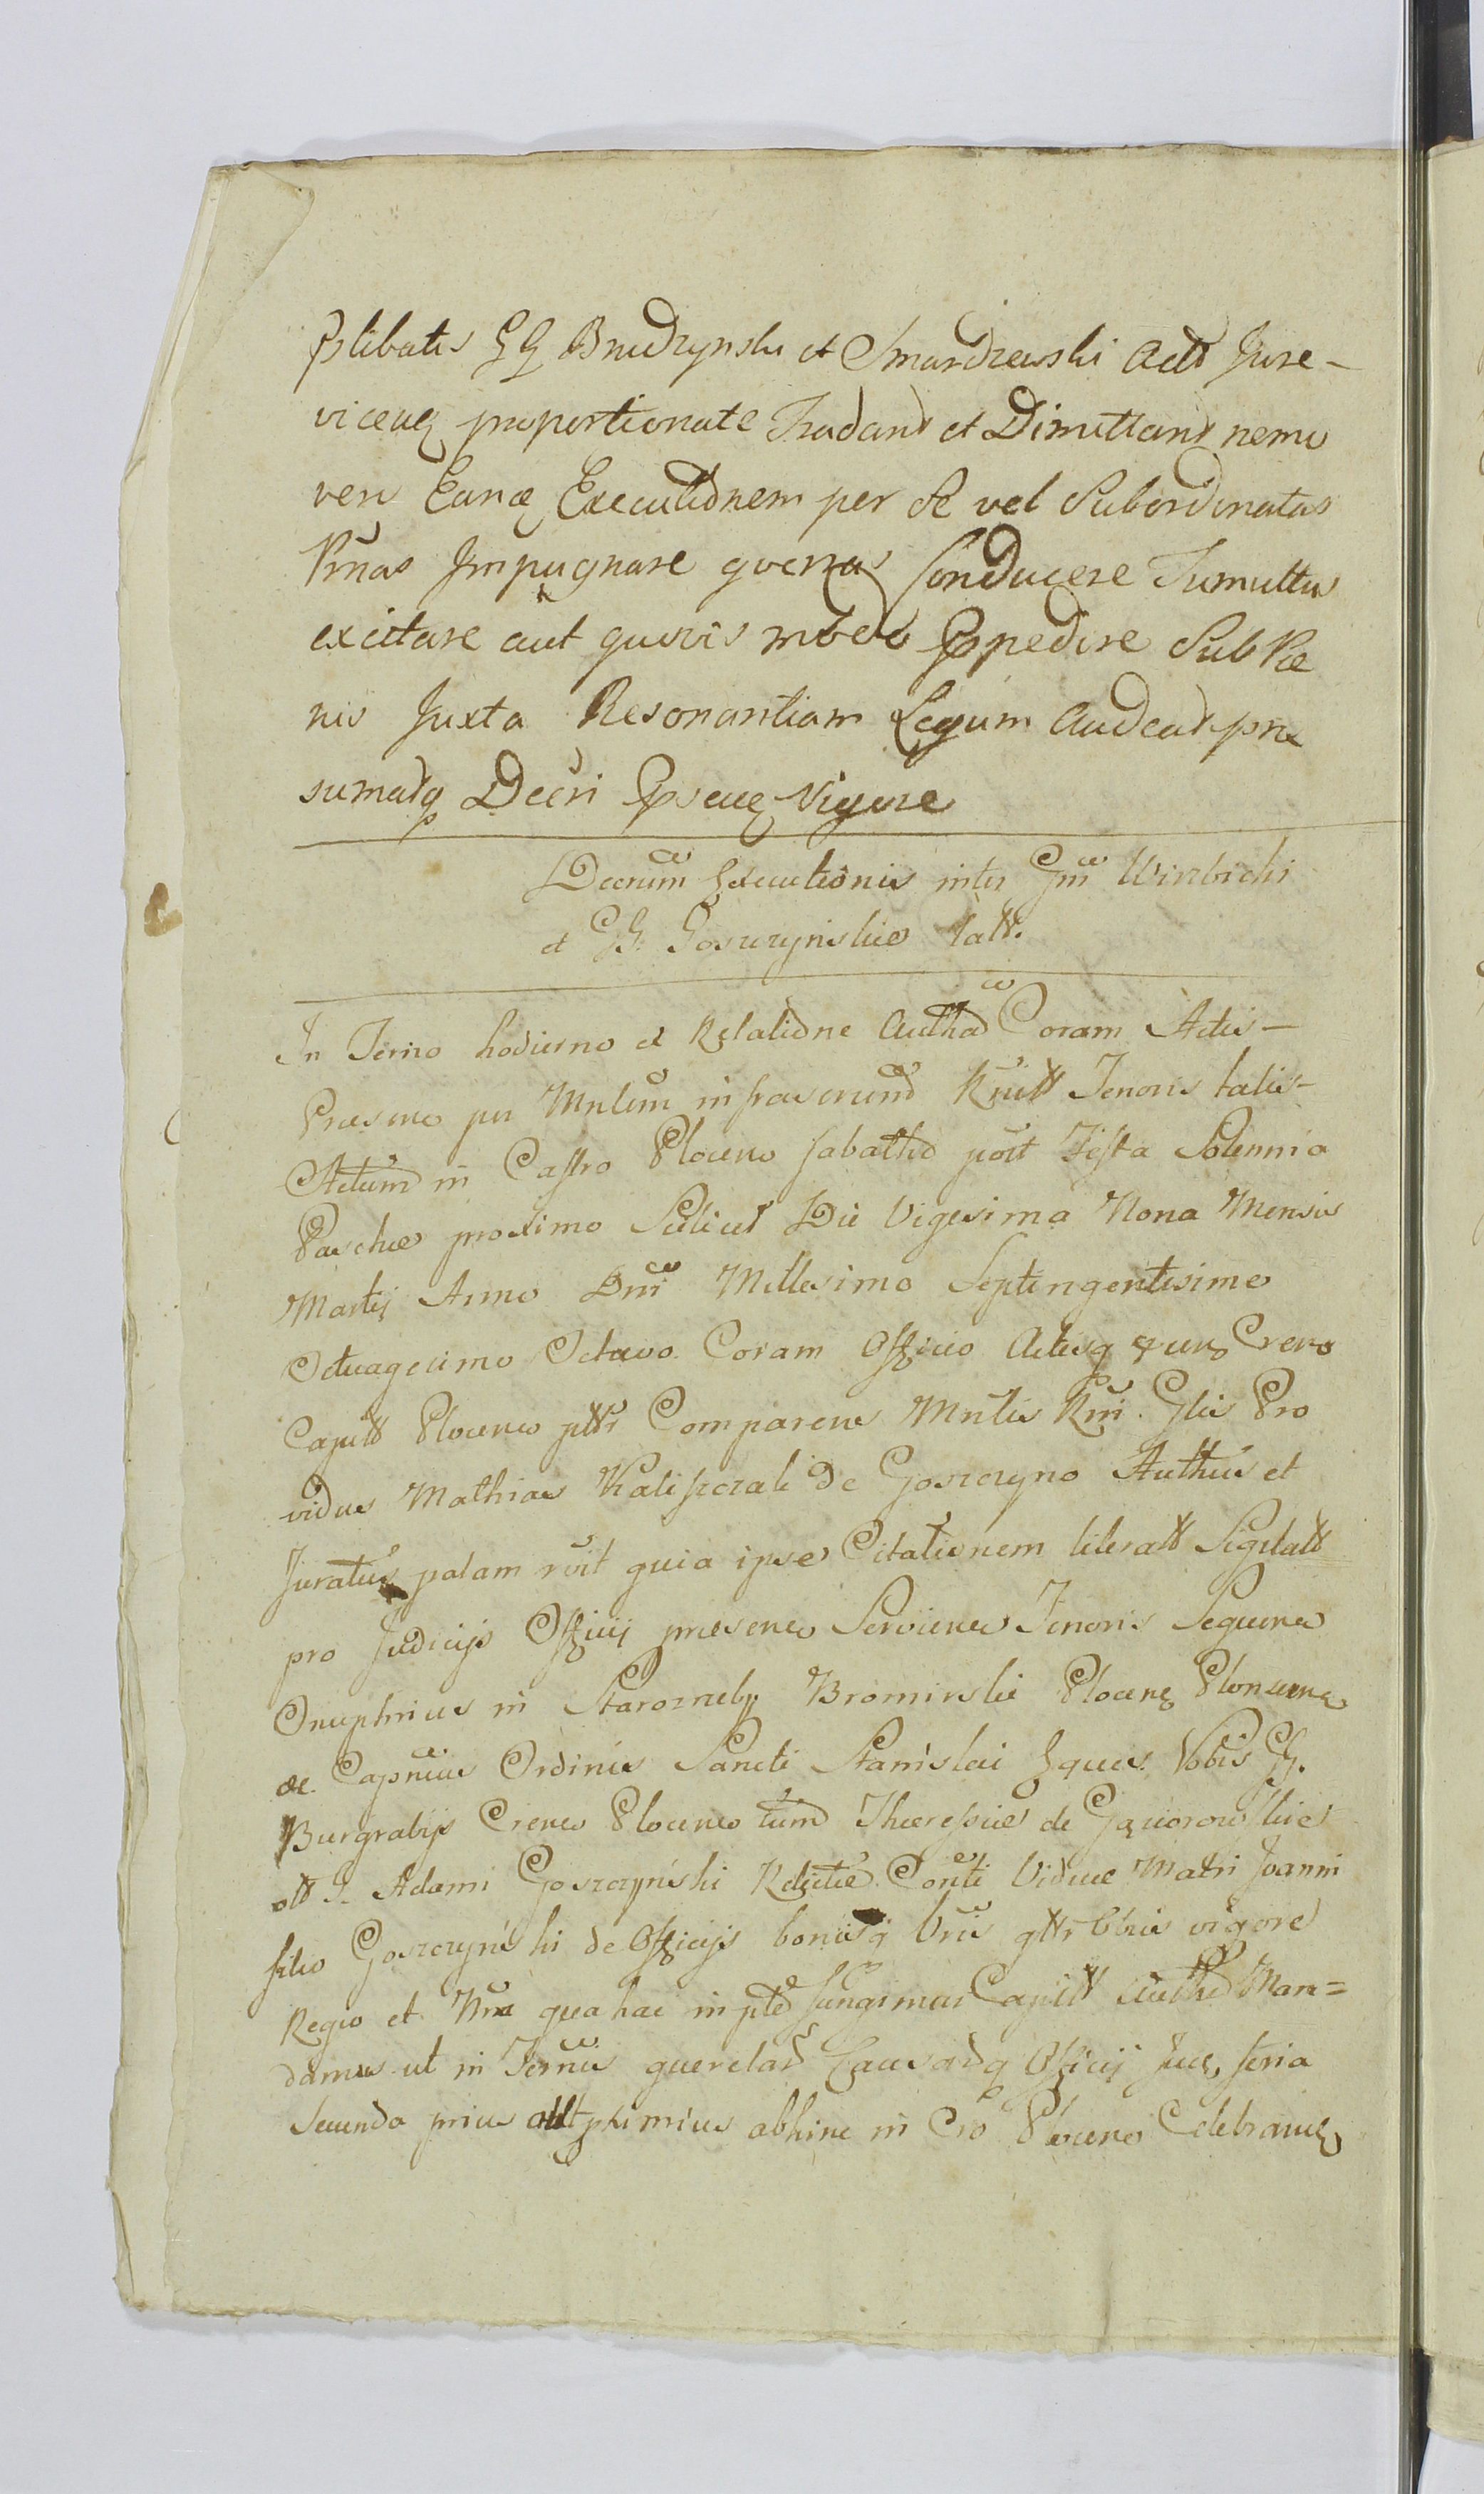 plibatis GG Brudzynski et Smardzewski Actd Jure-
viceuꝫ proportionate Tradant et Dimittant nemo
vero Eanæ Executionem per se vel Subordinatas
Prnas Impugnare gverras Conducere Tumultus
excitare aut quovis modo Ppedire Sub Pœ
nis Juxta Resonantiam Legum Audeat præ
sumatq Decri Psenꝫ Vigore
Decrum Executionis inter Gm Wirzbicki
et GG. Goszczynskie latt.
In Termo hodierno ex Relatione Authca Coram Actis-
Præsens per Mnlem infrascrund Knitt Tenoris talis-
Actum in Castro Plocens Sabatho post Festa Solennia
Paschæ proximo Scilicet Die Vigesima Nona Mensis
Martij Anno Dni Millesimo Septingentesimo
Octuagesimo Octavo Coram Officio Actisq Crens
Capitt Plocens pttr Comparens Mnlis Rni. Glis Pro
vidus Mathias Kaliszczak de Goszczyno Authus et
Juratus palam rvit quia ipse Citationem literatt Sigilatt
pro Judicijs Officij præsens Serviens Tenoris Sequens
Onuphrius in Starozreby Bromirski Plocenꝫ Plonensꝫ
æ. Capneus Ordinis Sancti Stanislai Eques. Vobis GG.
Burgrabijs Crens Plocens tum Theressiæ de Gąsiorowskie
ott G. Adami Goszczyński Relictæ Conti Viduæ Matri Joanni
filio Goszczyński de Officijs bonisq Vris gttr Obus vigore
Regio et Nra qua hac in pte fungimur Capitt Authe Man=
damus ut in Termis querelard Causardq Officij Jucꝫ, feria
Secunda prius aut primius abhinc in Cro Plocens Celebranꝫ